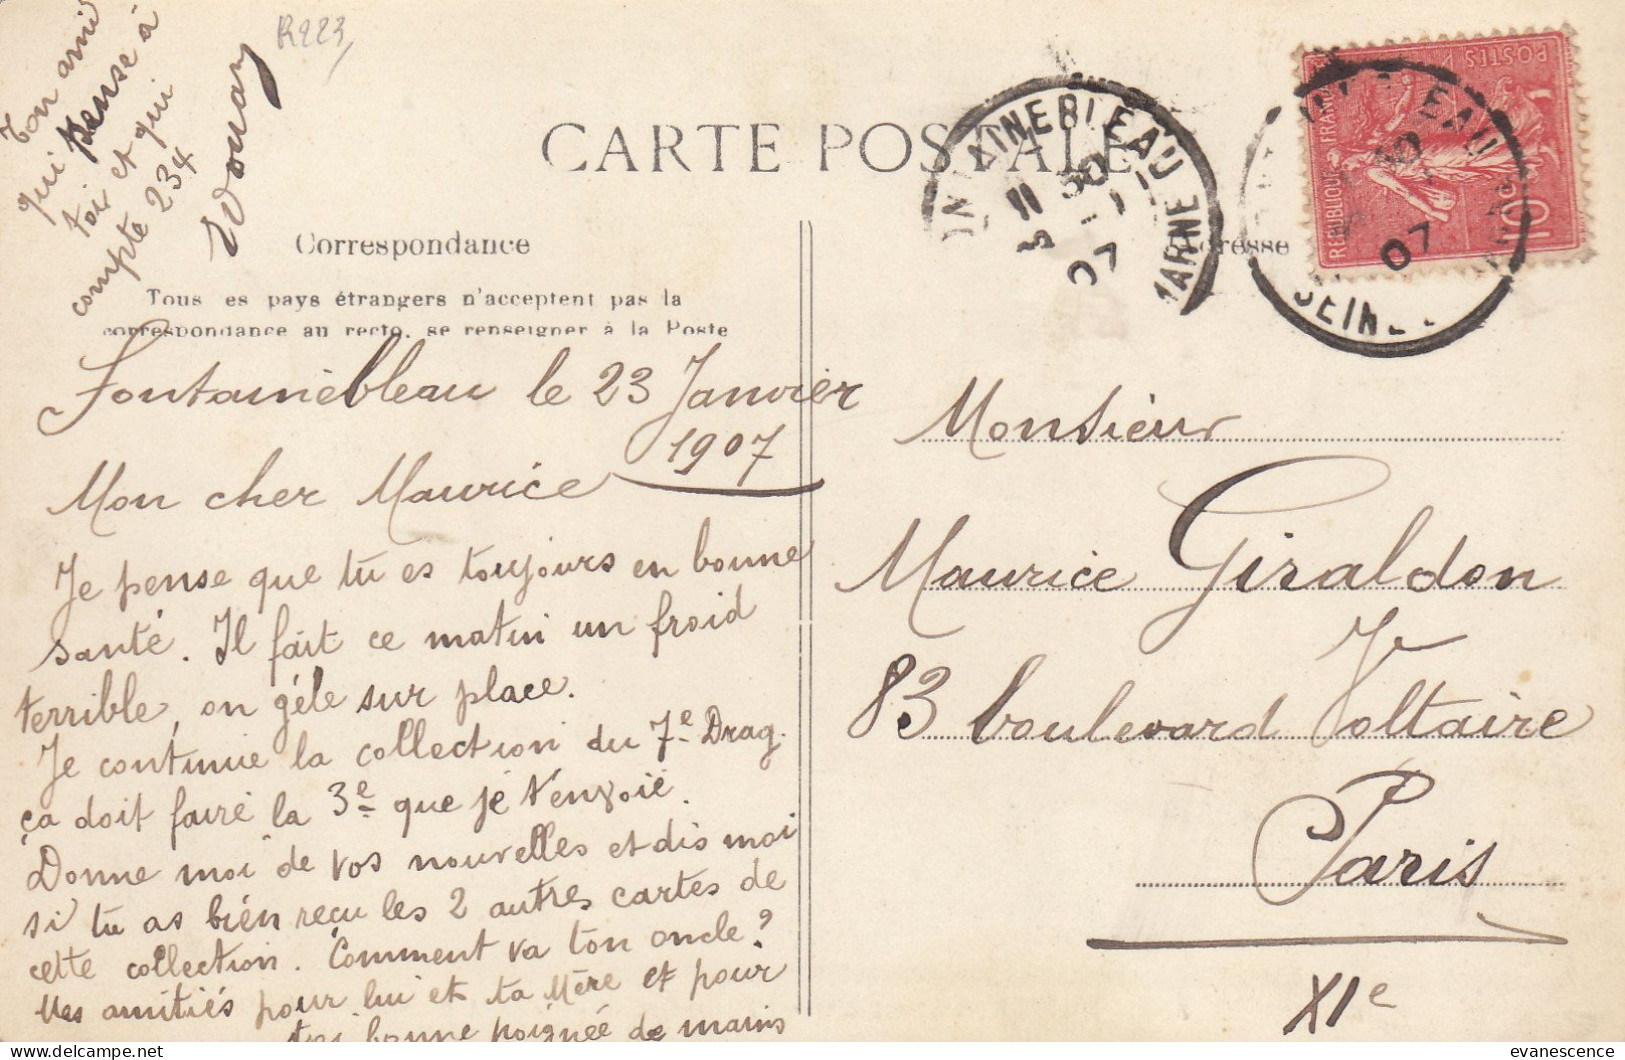 Ton ami
qui pense à
toi et qui
compte 234
R223
CARTE POSTALE
Correspondance
Tous es pays étrangers n'acceptent pas la
correspondance au recto, se renseigner à la Poste
Fontainebleau le 23 Janvier
1907
Mon cher Maurice
Je pense que tu es toujours en bonne
santé. Il fait ce matin un froid
terrible, on gèle sur place.
Je continue la collection du 7e Drag.
ça doit faire la 3e que je t'envoie.
Donne moi de vos nouvelles et dis moi
si tu as bien reçu les 2 autres cartes de
cette collection. Comment va ton oncle?
Mes amitiés pour lui et ta Mère et pour
toi bonne poignée de mains
FONTAINEBLEAU
11 30
07
MARNE
EAU
07
SEINE
POSTES
REPUBLIQUE FRANÇAISE
10
resse
Monsieur
Maurice Giraldon
83 boulevard Voltaire
Paris
XIe
evanescence